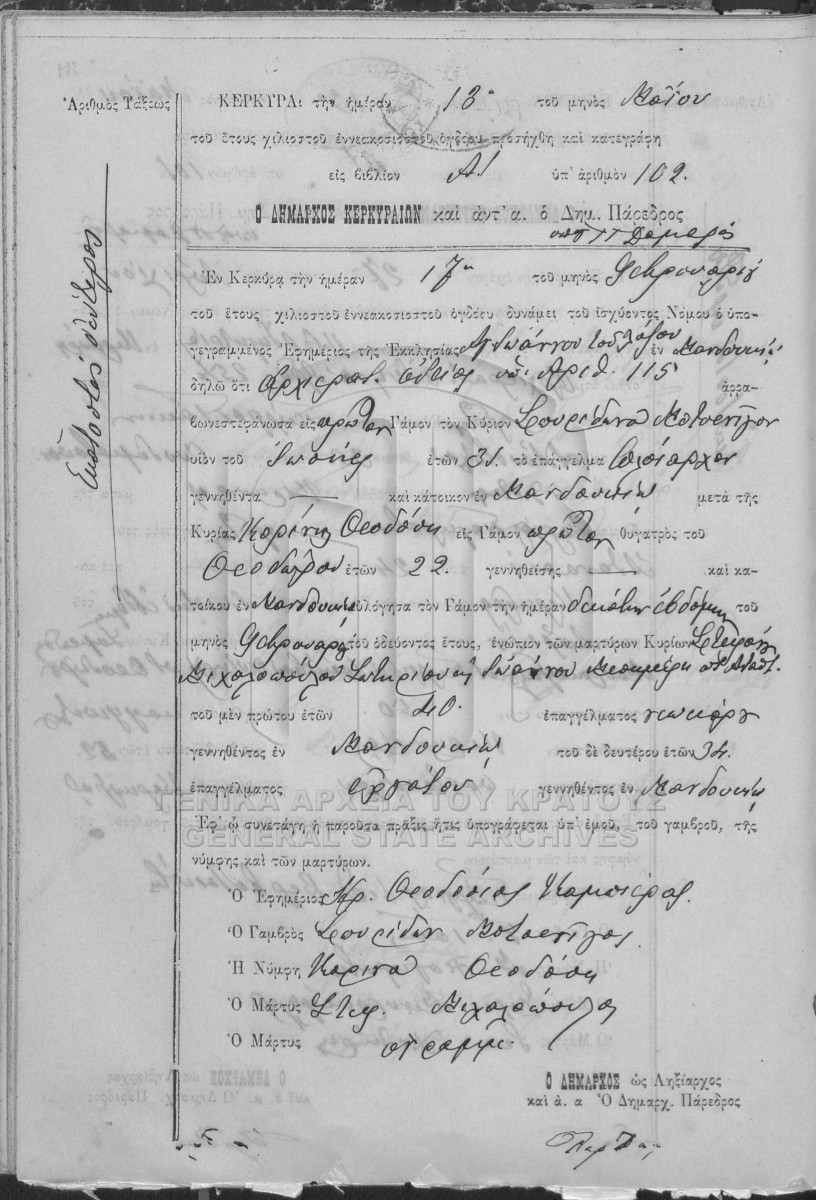 Ἀριθμὸς Τάξεως
Ἑκατοστὸς δεύτερος
ΚΕΡΚΥΡΑι τὴν ἡμέραν 13ῃ τοῦ μηνὸς Μαΐου
τοῦ ἔτους χιλιοστοῦ ἐννεακοσιοστοῦ ὀγδόου προσήχθη καὶ κατεγράφη
εἰς βιβλίον Α! ὑπ' ἀριθμὸν 102.
Ὁ ΔΗΜΑΡΧΟΣ ΚΕΡΚΥΡΑΙΩΝ καὶ ἀντ' α. ὁ Δημ. Πάρεδρος
Ἐν Κερκύρᾳ τὴν ἡμέραν 17ῃ τοῦ μηνὸς Φεβρουαρίου
τοῦ ἔτους χιλιοστοῦ ἐννεακοσιοστοῦ ὀγδόου δυνάμει τοῦ ἰσχύοντος Νόμου ὁ ὑπο-
γεγραμμένος Ἐφημέριος τῆς Ἐκκλησίας Ἁγ Ἰωάννου ἐν Μανδουκίῳ
δηλῶ ὅτι Ἀρχιερατ. ἀδείᾳ ὑπ. Ἀριθ. 115 ἀρρα-
βωνεστεφάνωσα εἰς πρῶτον Γάμον τὸν Κύριον Σπυρίδωνα Μοτσενῖγον
υἱὸν τοῦ ἐτῶν 31. τὸ ἐπάγγελμα
γεννηθέντα — καὶ κάτοικον ἐν Μανδουκίῳ μετὰ τῆς
Κυρίας Καρίνης Θεοδόση εἰς Γάμον πρῶτον θυγατρὸς τοῦ
Θεοδώρου ἐτῶν 22. γεννηθείσης — καὶ κα-
τοίκου ἐν Μανδουκίῳ εὐλόγησα τὸν Γάμον τὴν ἡμέραν δεκάτην ἑβδόμην τοῦ
μηνὸς Φεβρουαρίου τοῦ ὁδεύοντος ἔτους, ἐνώπιον τῶν μαρτύρων Κυρίων Στεφάνου
Μιχαλοπούλου Σωτηρίου κ Ἰωάννου
τοῦ μὲν πρώτου ἐτῶν 40. ἐπαγγέλματος νεωκόρου
γεννηθέντος ἐν Μανδουκίῳ τοῦ δὲ δευτέρου ἐτῶν 34.
ἐπαγγέλματος ἐργάτου γεννηθέντος ἐν Μανδουκίῳ
ΓΕΝΙΚΑ ΑΡΧΕΙΑ ΤΟΥ ΚΡΑΤΟΥΣ
Ἐφ' ᾧ συνετάγη ἡ παροῦσα πρᾶξις ἥτις ὑπογράφεται ὑπ' ἐμοῦ, τοῦ γαμβροῦ, τῆς
GENERAL STATE ARCHIVES
νύμφης καὶ τῶν μαρτύρων.
Ὁ Ἐφημέριος Θεοδόσιος
Ὁ Γαμβρὸς Σπυρίδων Μοτσενῖγος
Ἡ Νύμφη Καρίνα Θεοδόση
Ὁ Μάρτυς Στεφ. Μιχαλόπουλος
Ὁ Μάρτυς ἀγραμμ.
Ὁ ΔΗΜΑΡΧΟΣ ὡς Ληξίαρχος
καὶ ἀ. α Ὁ Δημαρχ. Πάρεδρος